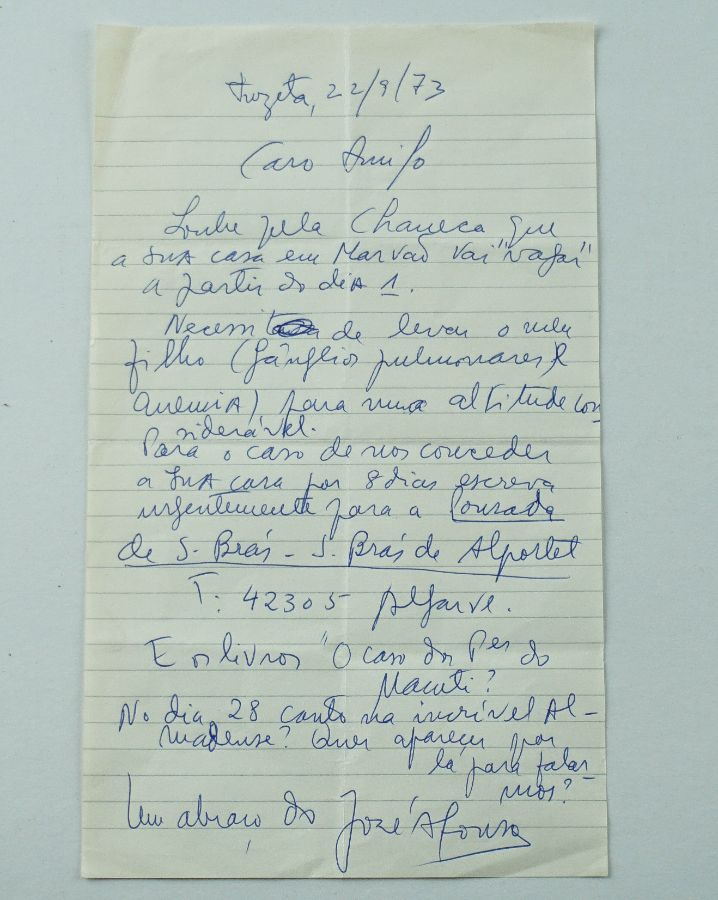 Fuzeta, 22/9/73
Caro Amigo
Soube pela Chaveca que
a SUA casa em Marvão vai "vagar"
a partir do diA 1.
Necessito de levar o meu
filho (gânglios pulmonares e
anemiA) para uma altitude con
siderável.
Para o caso de nos conceder
a SUA casa por 8 dias escreva
urgentemente para a Pousada
de S. Brás - S. Brás de Alportel
T: 42305 Algarve.
E os livros "O caso dos Pes do
Macuti?
No dia 28 canto na incrível Al-
madense? Quer aparecer por
lá para falar-
mos?
Um abraço do José Afonso